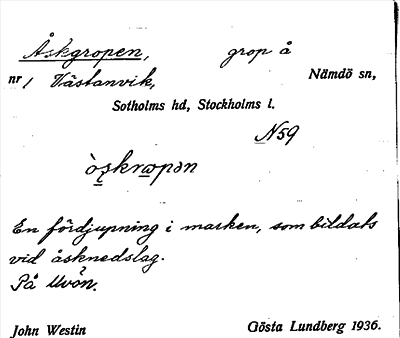 Åskgropen, grop å
nr 1 Västanvik, Nämdö sn,
Sotholms hd, Stockholms l.
N59
ò̱skrωpən
En fördjupning i marken, som bildats
vid åsknedslag.
På Uvön.
John Westin Gösta Lundberg 1936.